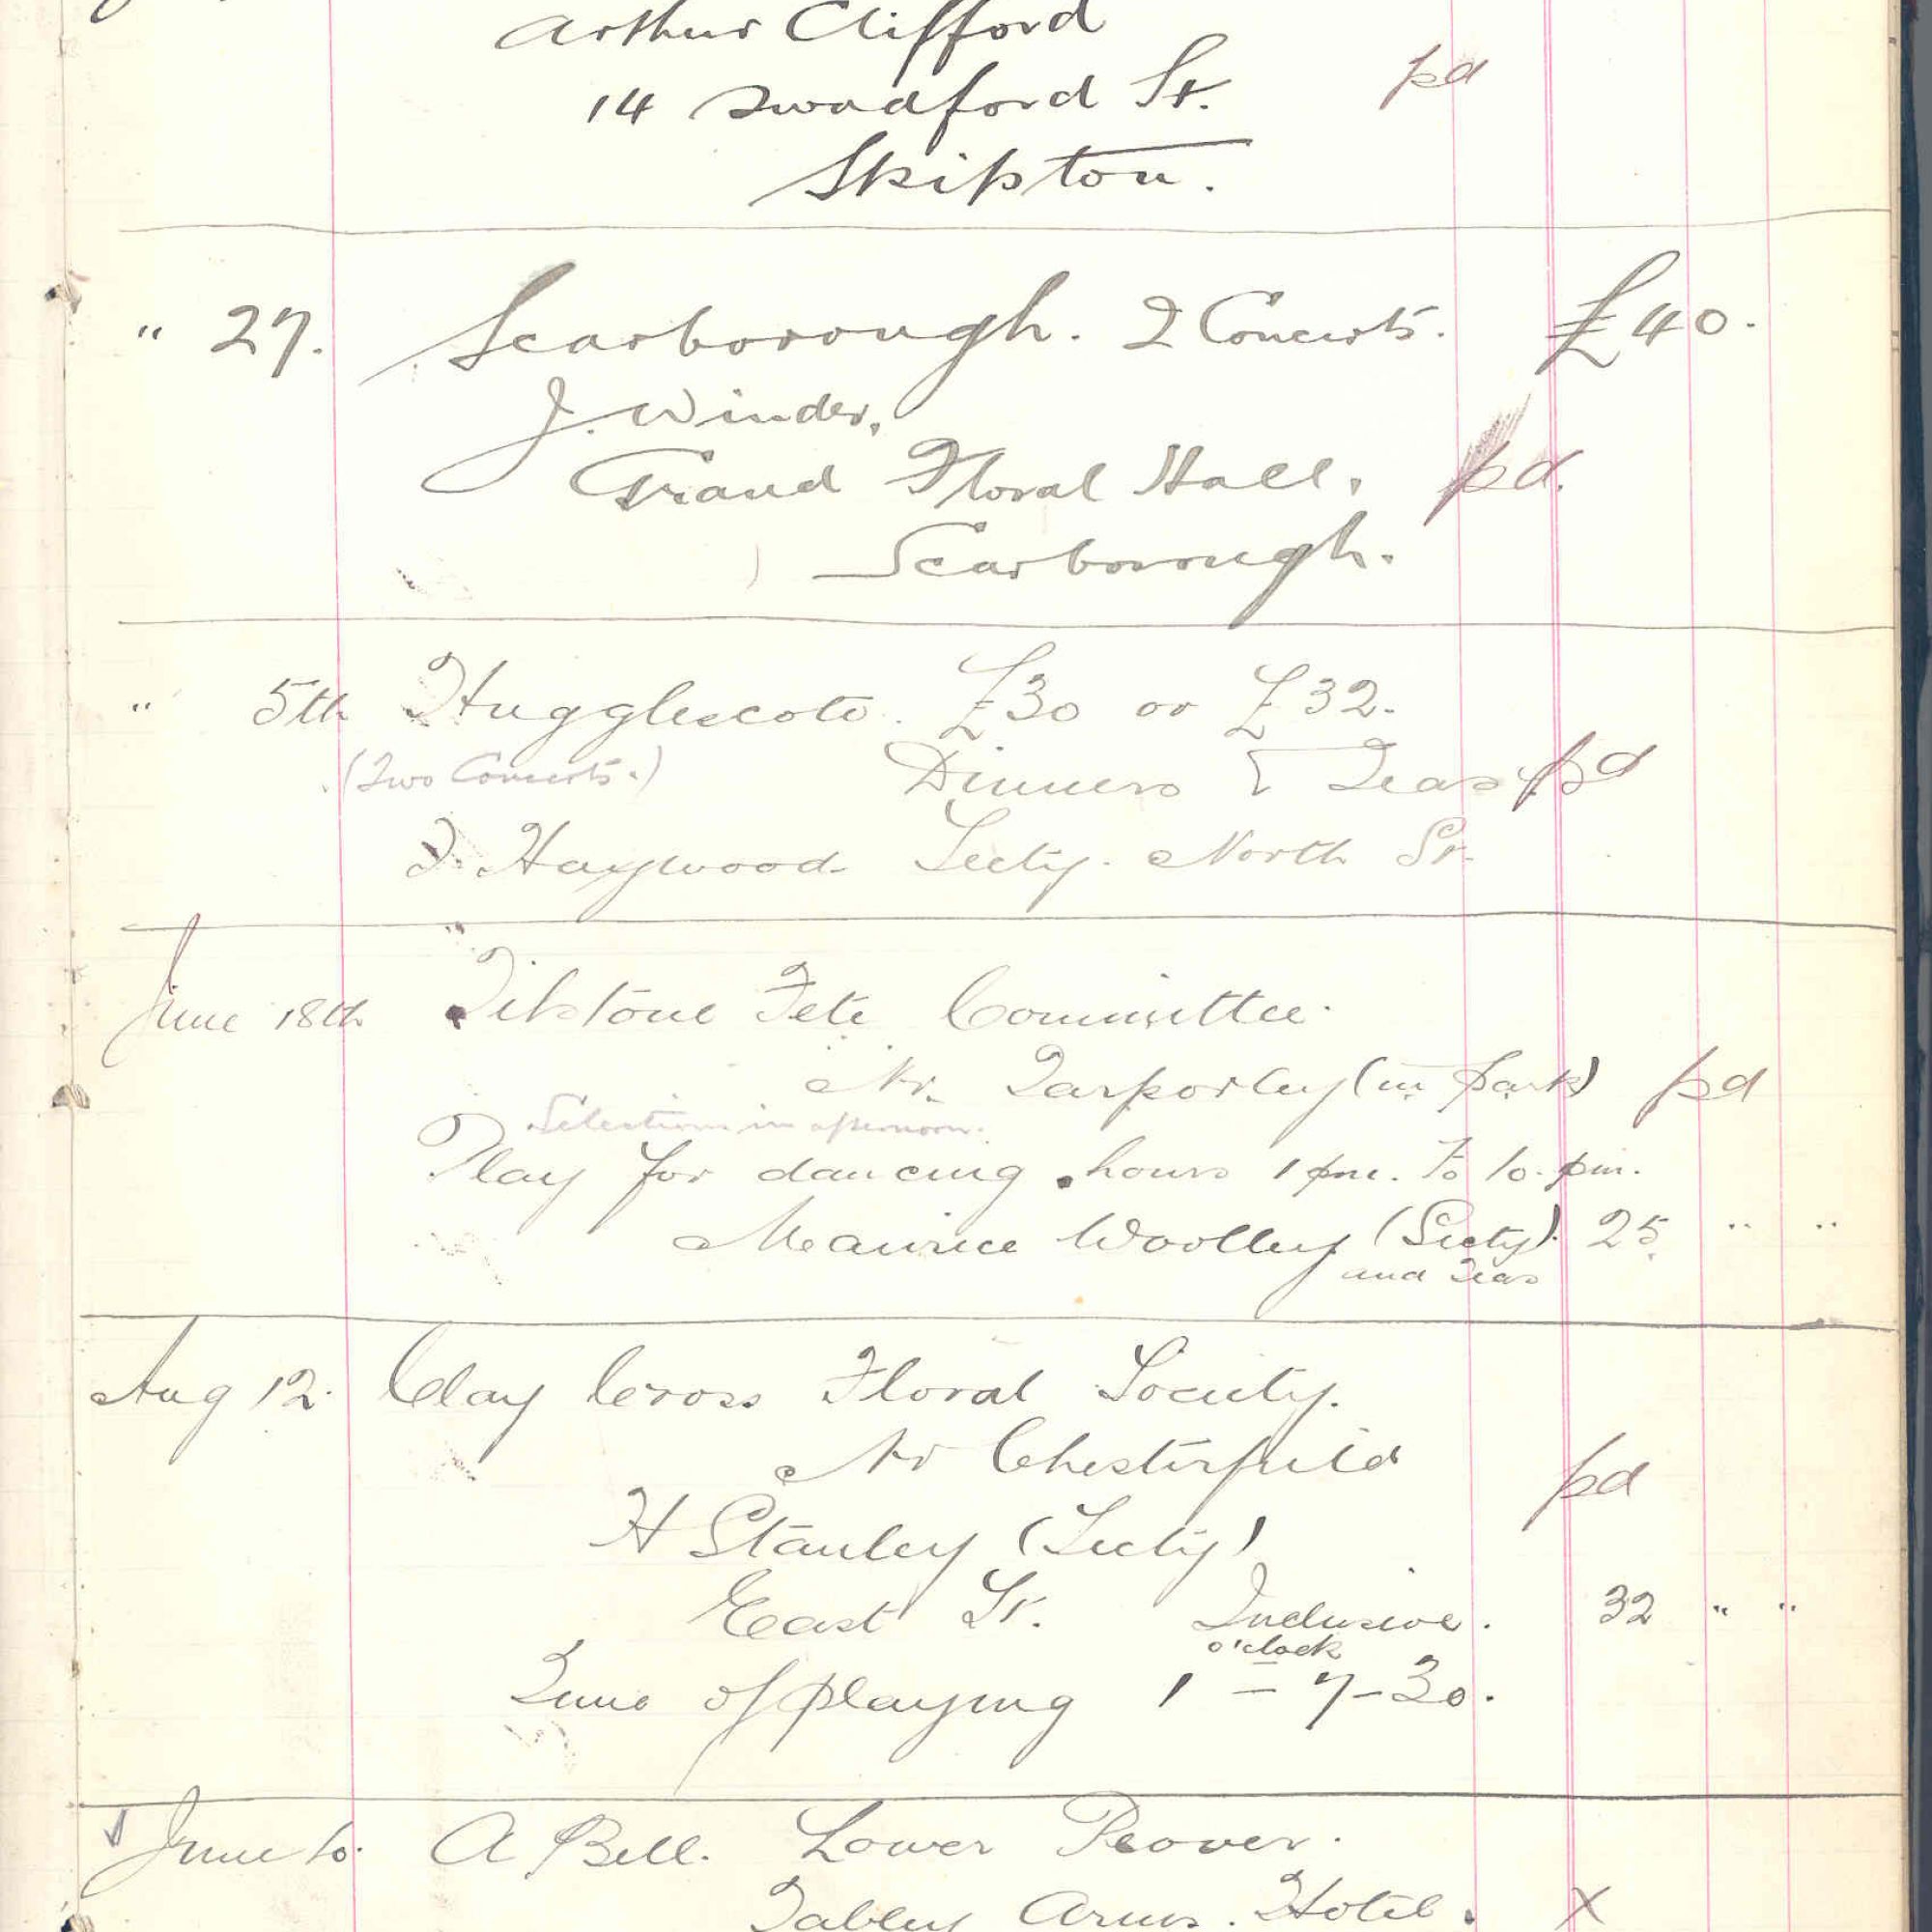 Arthur Clifford
14 Swadford St. pd
Skipton.
" 27. Scarborough. 2 Concerts. £40.
J. Winder,
Grand Floral Hall, pd.
Scarborough.
" 5th Hugglescote. £30 or £32.
(Two Concerts.) Dinners & Teas pd
J. Haywood Secty. North St.
June 18th Tilstone Fete Committee.
Nr. Tarporley (in Park) pd
Selections in afternoon.
Play for dancing hours 1 pm. to 10. pm.
Maurice Woolley (Secty). 25 " "
and Teas
Aug 12. Clay Cross Floral Society.
Nr Chesterfield pd
H Stanley (Secty)
East St. Inclusive. 32 " "
o'clock
Time of playing 1 – 7–30.
June 10. A Bell. Lower Peover.
Tabley Arms. Hotel. X